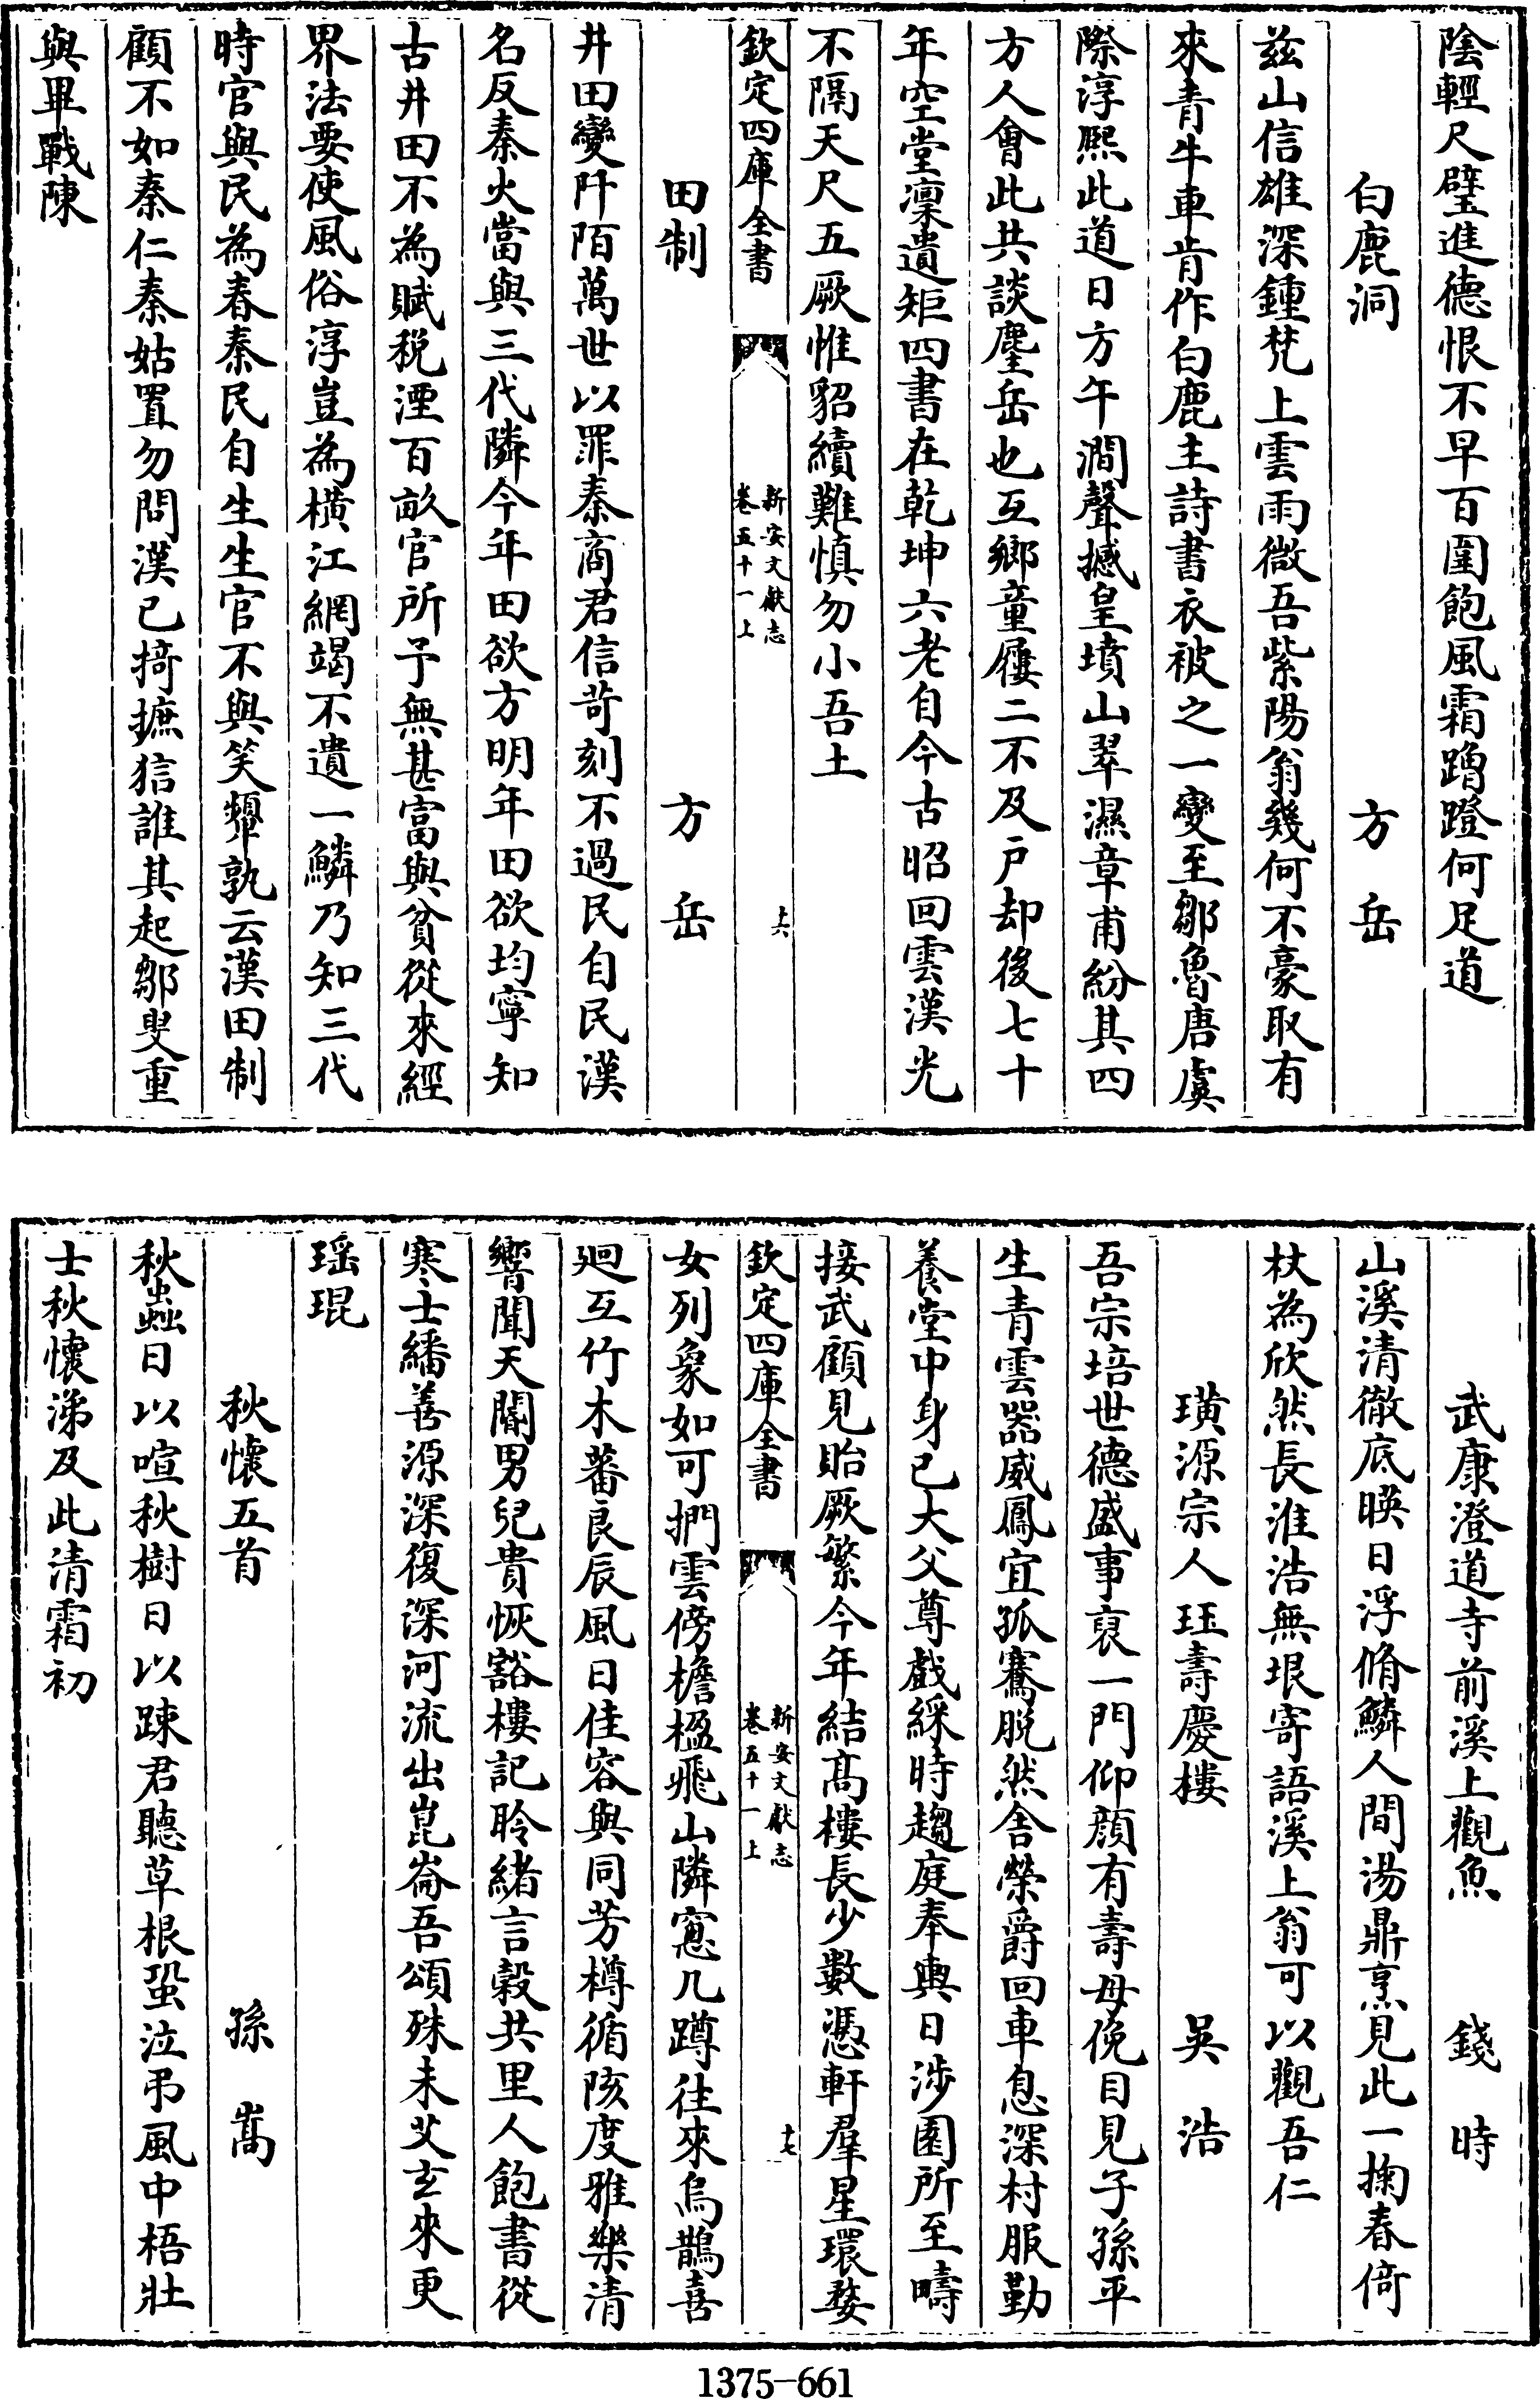 陰輕尺璧進德恨不早百圍飽風霜蹭蹬何足道
白鹿洞　方岳
兹山信雄深鍾梵上雲雨微吾紫陽翁幾何不豪取有
來青牛車肯作白鹿主詩書衣被之一變至鄒魯唐虞
際淳熈此道日方午澗聲撼皇墳山翠濕章甫紛其四
方人會此共談麈岳也互鄉童屨二不及户却後七十
年空堂凛遺矩四書在乾坤六老自今古昭回雲漢光
不隔天尺五厥惟貂續難慎勿小吾土
欽定四庫全書
新安文獻志
卷五十一上
十六
田制　方岳
井田變阡陌萬世以罪秦商君信苛刻不過民自民漢
名反秦火當與三代隣今年田欲方明年田欲均寧知
古井田不為賦稅湮百畝官所予無甚富與貧從來經
界法要使風俗淳豈為横江網竭不遺一鱗乃知三代
時官與民為春秦民自生生官不與笑顰孰云漢田制
顧不如秦仁秦姑置勿問漢已掎摭狺誰其起鄒叟重
與畢戰陳
武康澄道寺前溪上觀魚　錢時
山溪清徹底暎日浮脩鱗人間湯鼎烹見此一掬春倚
杖為欣然長淮浩無垠寄語溪上翁可以觀吾仁
璜源宗人珏壽慶樓　吳浩
吾宗培世德盛事裒一門仰顔有壽母俛目見子孫平
生青雲器威鳳宜孤騫脱然舍榮爵回車息深村服勤
養堂中身已大父尊戲綵時趨庭奉輿日涉園所至疇
接武顧見貽厥繁今年結髙樓長少數憑軒羣星環婺
欽定四庫全書
新安文獻志
卷五十一上
十七
女列象如可捫雲傍檐楹飛山隣窻几蹲往來烏鵲喜
廻互竹木蕃良辰風日佳容與同芳樽循陔度雅樂清
響聞天閽男兒貴恢豁樓記聆緒言榖共里人飽書從
寒士繙善源深復深河流出崑崙吾頌殊未艾玄來更
瑶琨
秋懐五首　孫嵩
秋蟲日以喧秋樹日以疎君聽草根蛩泣弔風中梧壯
士秋懐涕及此清霜初
1375-661